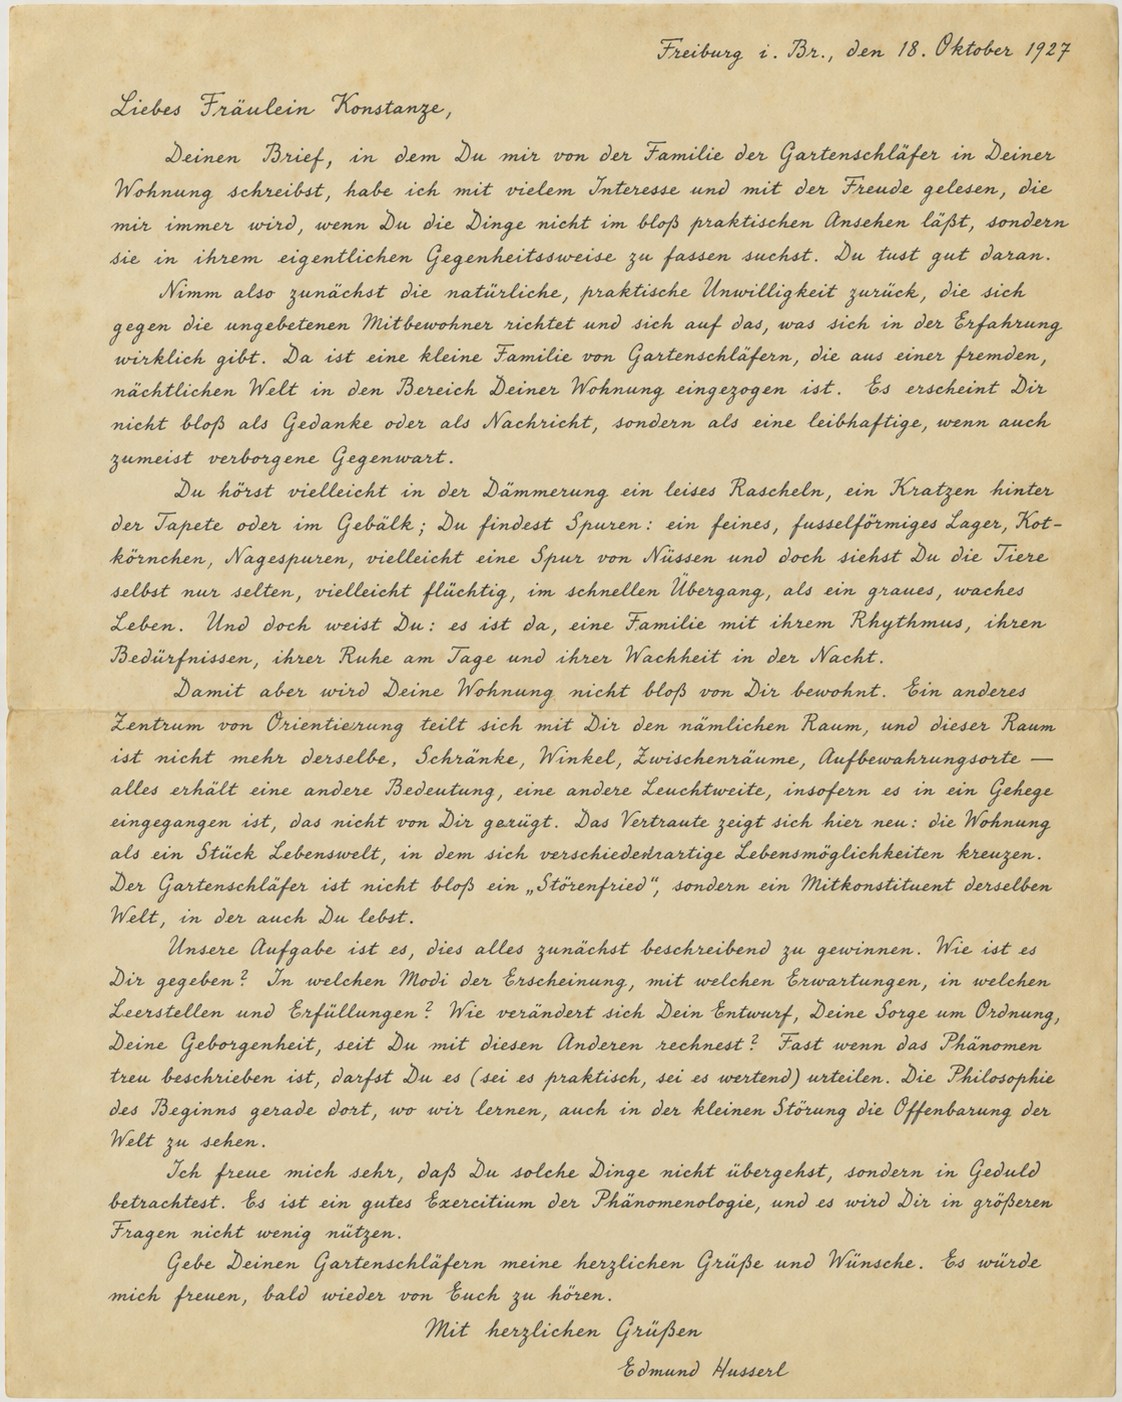 Freiburg i. Br., den 18. Oktober 1927
Liebes Fräulein Konstanze,
Deinen Brief, in dem Du mir von der Familie der Gartenschläfer in Deiner
Wohnung schreibst, habe ich mit vielem Interesse und mit der Freude gelesen, die
mir immer wird, wenn Du die Dinge nicht im bloß praktischen Ansehen läßt, sondern
sie in ihrem eigentlichen Gegenheitssweise zu fassen suchst. Du tust gut daran.
Nimm also zunächst die natürliche, praktische Unwilligkeit zurück, die sich
gegen die ungebetenen Mitbewohner richtet und sich auf das, was sich in der Erfahrung
wirklich gibt. Da ist eine kleine Familie von Gartenschläfern, die aus einer fremden,
nächtlichen Welt in den Bereich Deiner Wohnung eingezogen ist. Es erscheint Dir
nicht bloß als Gedanke oder als Nachricht, sondern als eine leibhaftige, wenn auch
zumeist verborgene Gegenwart.
Du hörst vielleicht in der Dämmerung ein leises Rascheln, ein Kratzen hinter
der Tapete oder im Gebälk; Du findest Spuren: ein feines, fusselförmiges Lager, Kot-
körnchen, Nagespuren, vielleicht eine Spur von Nüssen und doch siehst Du die Tiere
selbst nur selten, vielleicht flüchtig, im schnellen Übergang, als ein graues, waches
Leben. Und doch weist Du: es ist da, eine Familie mit ihrem Rhythmus, ihren
Bedürfnissen, ihrer Ruhe am Tage und ihrer Wachheit in der Nacht.
Damit aber wird Deine Wohnung nicht bloß von Dir bewohnt. Ein anderes
Zentrum von Orientierung teilt sich mit Dir den nämlichen Raum, und dieser Raum
ist nicht mehr derselbe. Schränke, Winkel, Zwischenräume, Aufbewahrungsorte —
alles erhält eine andere Bedeutung, eine andere Leuchtweite, insofern es in ein Gehege
eingegangen ist, das nicht von Dir gerügt. Das Vertraute zeigt sich hier neu: die Wohnung
als ein Stück Lebenswelt, in dem sich verschiedenartige Lebensmöglichkeiten kreuzen.
Der Gartenschläfer ist nicht bloß ein „Störenfried“, sondern ein Mitkonstituent derselben
Welt, in der auch Du lebst.
Unsere Aufgabe ist es, dies alles zunächst beschreibend zu gewinnen. Wie ist es
Dir gegeben? In welchen Modi der Erscheinung, mit welchen Erwartungen, in welchen
Leerstellen und Erfüllungen? Wie verändert sich Dein Entwurf, Deine Sorge um Ordnung,
Deine Geborgenheit, seit Du mit diesen Anderen rechnest? Fast wenn das Phänomen
treu beschrieben ist, darfst Du es (sei es praktisch, sei es wertend) urteilen. Die Philosophie
des Beginns gerade dort, wo wir lernen, auch in der kleinen Störung die Offenbarung der
Welt zu sehen.
Ich freue mich sehr, daß Du solche Dinge nicht übergehst, sondern in Geduld
betrachtest. Es ist ein gutes Exercitium der Phänomenologie, und es wird Dir in größeren
Fragen nicht wenig nützen.
Gebe Deinen Gartenschläfern meine herzlichen Grüße und Wünsche. Es würde
mich freuen, bald wieder von Euch zu hören.
Mit herzlichen Grüßen
Edmund Husserl